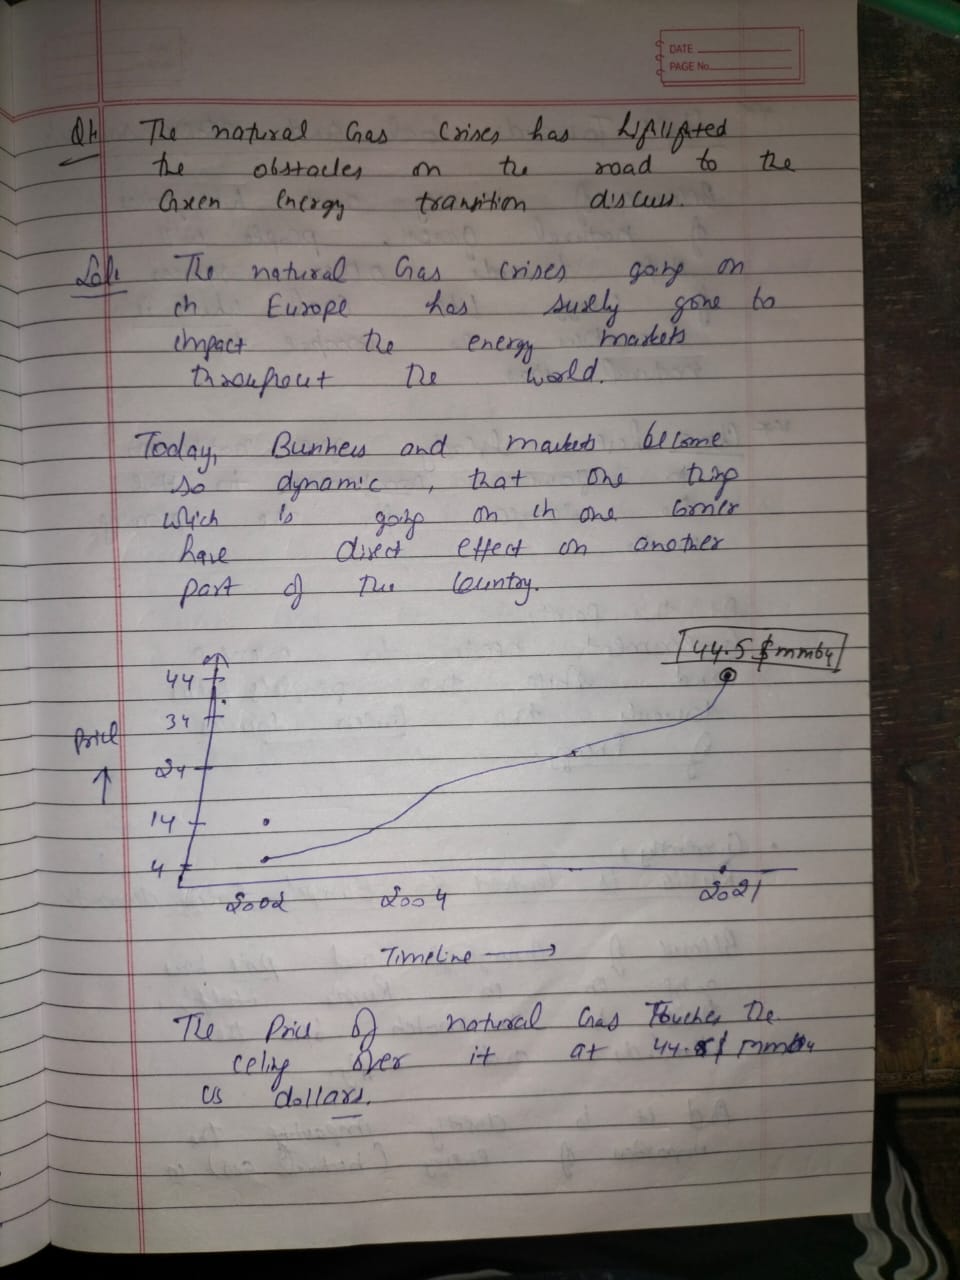 DATE
PAGE No.
Q1. The natural Gas Crises has
the obstacles on the road to the
Green Energy transition discuss.
Soln The natural Gas crises going on
in Europe has surely gone to
impact the energy markets
throughout the world.
Today, Business and markets become
so dynamic, that one thing
which is going on in one corner
have direct effect on another
part of the Country.
44.5 $ mmbu
44
34
Price
24
14
4
2002 2004 2021
Timeline
The Price of natural Gas Touches the
celing over it at 44.5$ mmbu
us dollars.